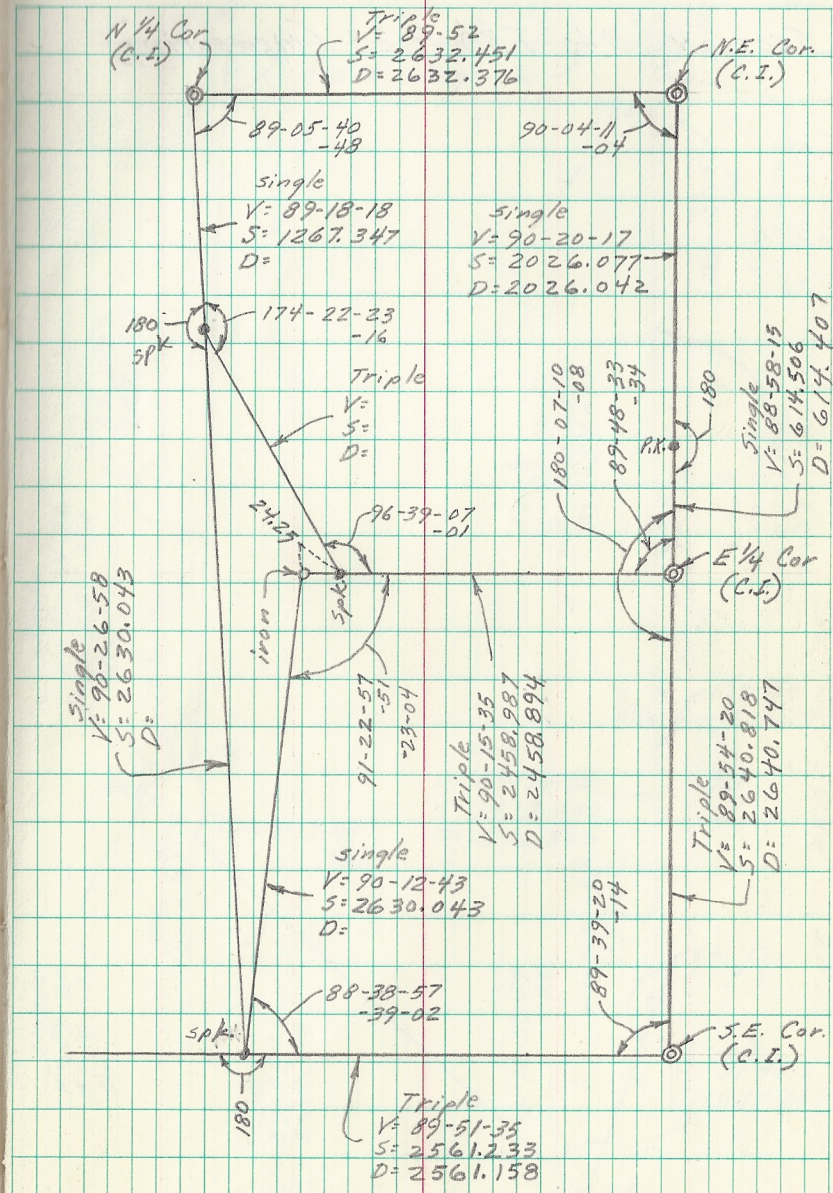 N 1/4 Cor
(C.I.)
Triple
V= 89-52
S= 2632.451
D= 2632.376
N.E. Cor.
(C.I.)
89-05-40
-48
90-04-11
-04
single
V= 89-18-18
S= 1267.347
D=
single
V= 90-20-17
S= 2026.077
D= 2026.042
180
spk
174-22-23
-16
Triple
V=
S=
D=
180-07-10
-08
89-48-33
-34
P.K.
180
Single
V= 88-58-15
S= 614.506
D= 614.407
24.25
96-39-07
-01
iron
spk
E 1/4 Cor
(C.I.)
Single
V= 90-26-58
S= 2630.043
D=
91-22-57
-51
-23-04
Triple
V= 90-15-35
S= 2458.987
D= 2458.894
Triple
V= 89-54-20
S= 2640.818
D= 2640.747
single
V= 90-12-43
S= 2630.043
D=
88-38-57
-39-02
89-39-20
-14
spk
180
S.E. Cor.
(C.I.)
Triple
V= 89-51-35
S= 2561.233
D= 2561.158